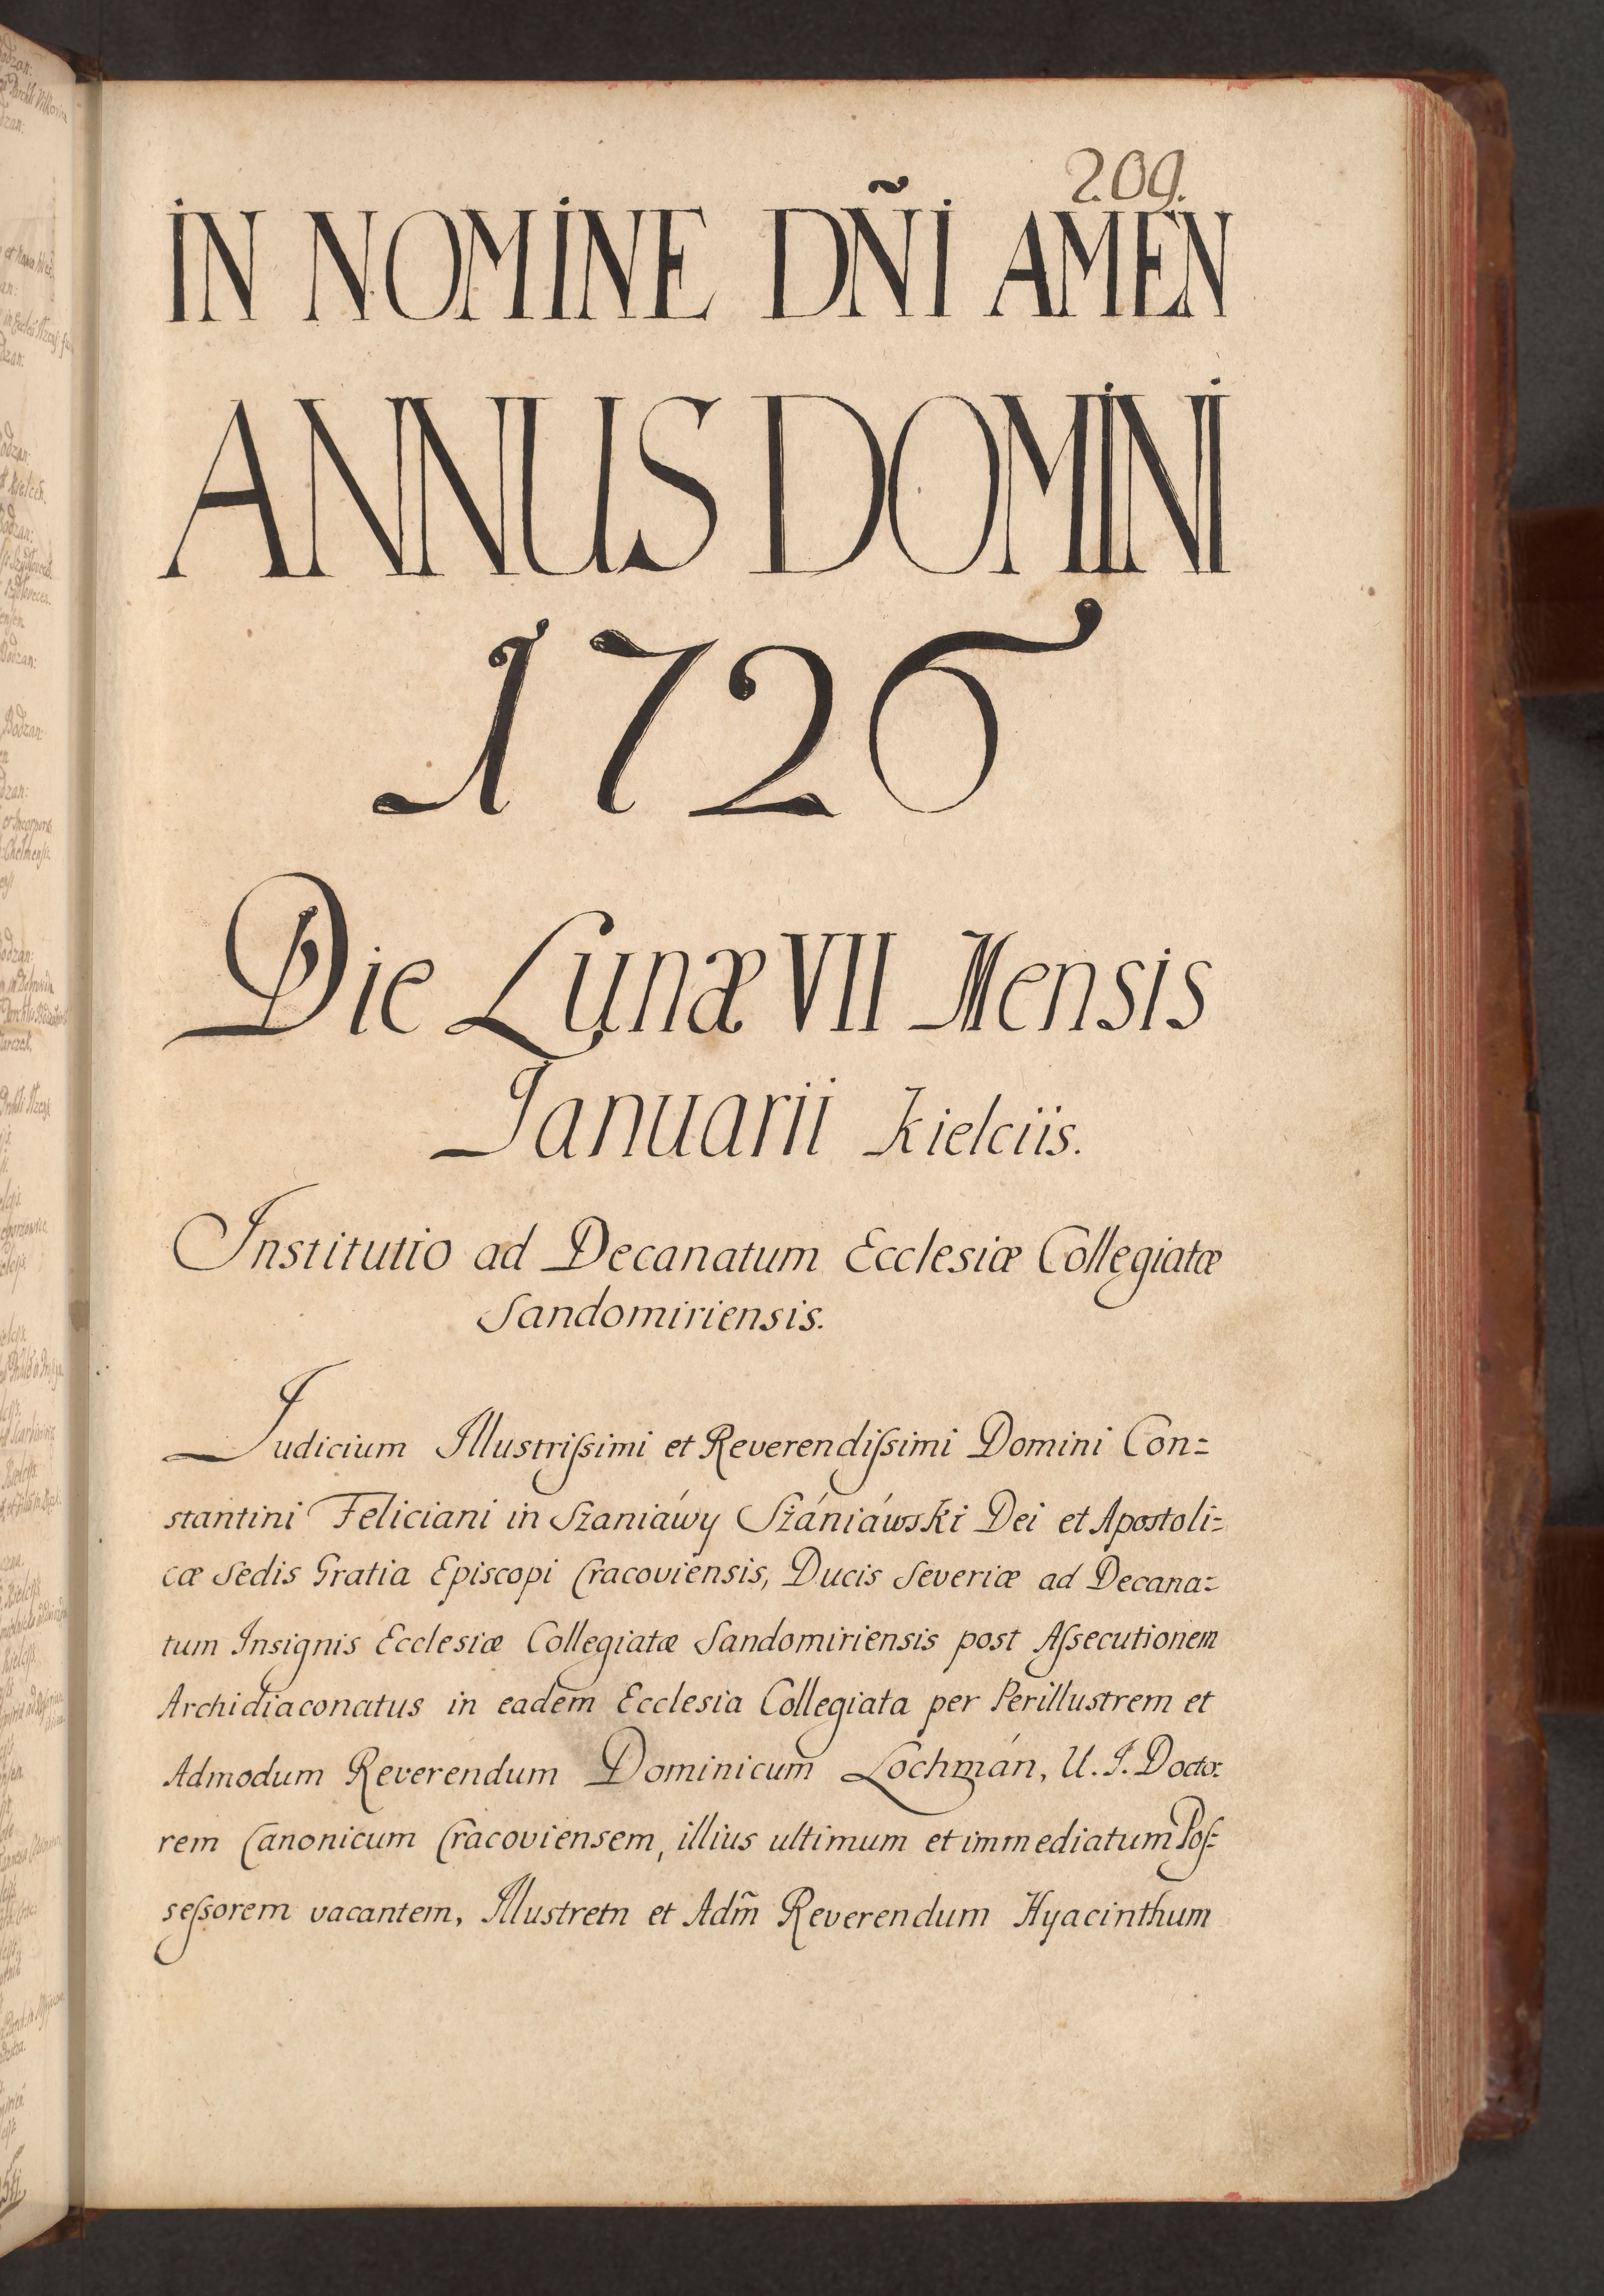 209.
IN NOMINE DÑI AMEN
ANNUS DOMINI
1726
Die Lunæ VII Mensis
Januarii Kielciis.
Institutio ad Decanatum Ecclesiæ Collegiatæ
Sandomiriensis.
Judicium Illustriſsimi et Reverendiſsimi Domini Con=
stantini Feliciani in Szaniáwy Szániáwski Dei et Apostoli=
cæ Sedis Gratia Episcopi Cracoviensis, Ducis Severiæ ad Decana=
tum Insignis Ecclesiæ Collegiatæ Sandomiriensis post Aſsecutionem
Archidiaconatus in eadem Ecclesia Collegiata per Perillustrem et
Admodum Reverendum Dominicum Lochmán, U. J. Docto=
rem Canonicum Cracoviensem, illius ultimum et immediatum Poſ=
seſsorem vacantem, Illustrem et Adm̃ Reverendum Hyacinthum